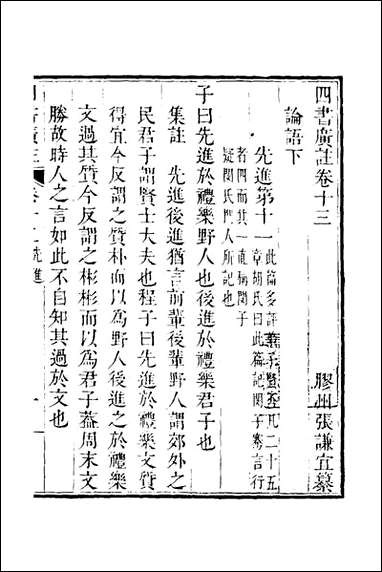 四書廣註卷十三
膠州張謙宜纂
論語下
先進第十一
此篇多評弟子賢否凡二十五
章胡氏曰此篇記閔子騫言行
者四而其一直稱閔子
疑閔氏門人所記也
子曰先進於禮樂野人也後進於禮樂君子也
集註　先進後進猶言前輩後輩野人謂郊外之
民君子謂賢士大夫也程子曰先進於禮樂文質
得宜今反謂之質朴而以為野人後進之於禮樂
文過其質今反謂之彬彬而以為君子蓋周末文
勝故時人之言如此不自知其過於文也
先進
一